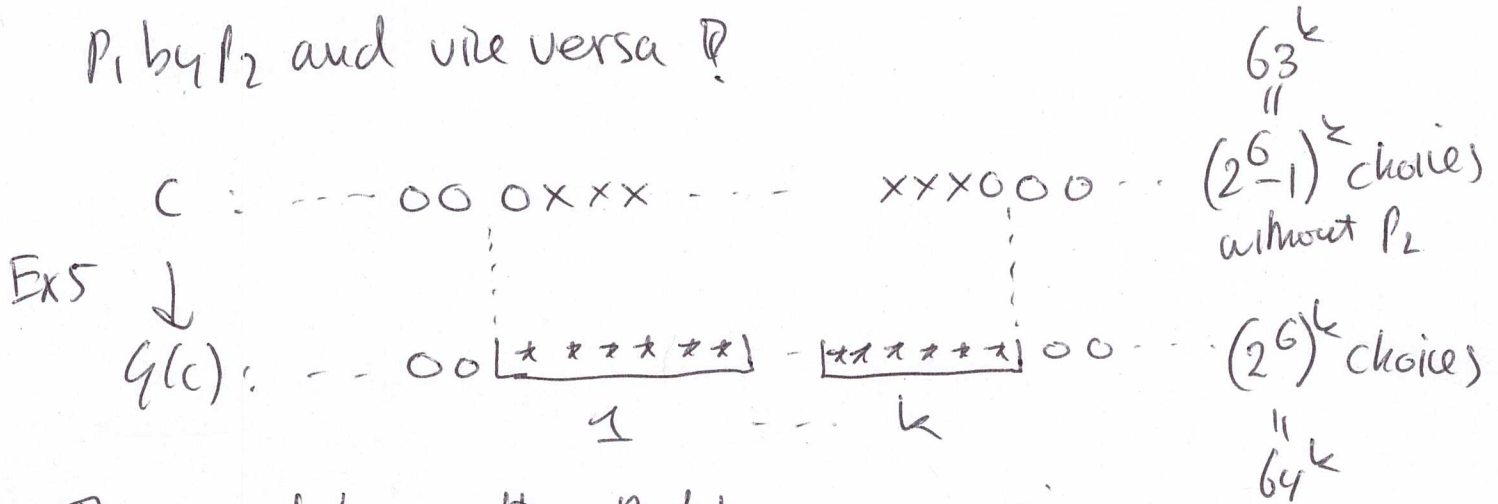 P₁ by P₂ and vice versa ?
63^k
=
C : ---- 00 0xxx - - - xxx000 -- (2^6-1)^k choices
without P₂
Ex5 ↓
G(c) : - - 00[* * * * * *] - [* * * * * *] 00 --- (2^6)^k choices
1 ---- k
=
64^k